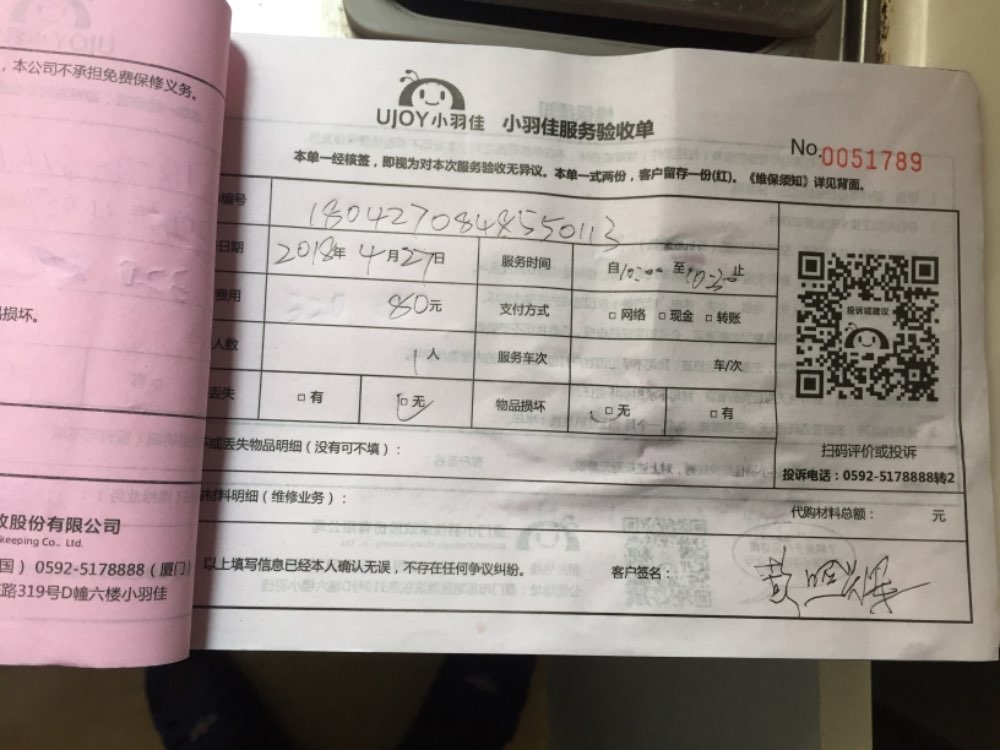 ，本公司不承担免费保修义务。
损坏。
股份有限公司
keeping Co., Ltd.
国）0592-5178888（厦门）
路319号D幢六楼小羽佳
UJOY小羽佳 小羽佳服务验收单
No.0051789
本单一经核签，即视为对本次服务验收无异议。本单一式两份，客户留存一份(红)。《维保须知》详见背面。
编号 1804270848550113
日期 2018年4月27日 服务时间 自10:00至10:30止
费用 80元 支付方式 □网络 □现金 □转账
人数 1人 服务车次 车/次
丢失 □有 □无 物品损坏 □无 □有
投诉或建议
扫码评价或投诉
投诉电话：0592-5178888转2
或丢失物品明细（没有可不填）：
材料明细（维修业务）：
代购材料总额： 元
以上填写信息已经本人确认无误，不存在任何争议纠纷。 客户签名：